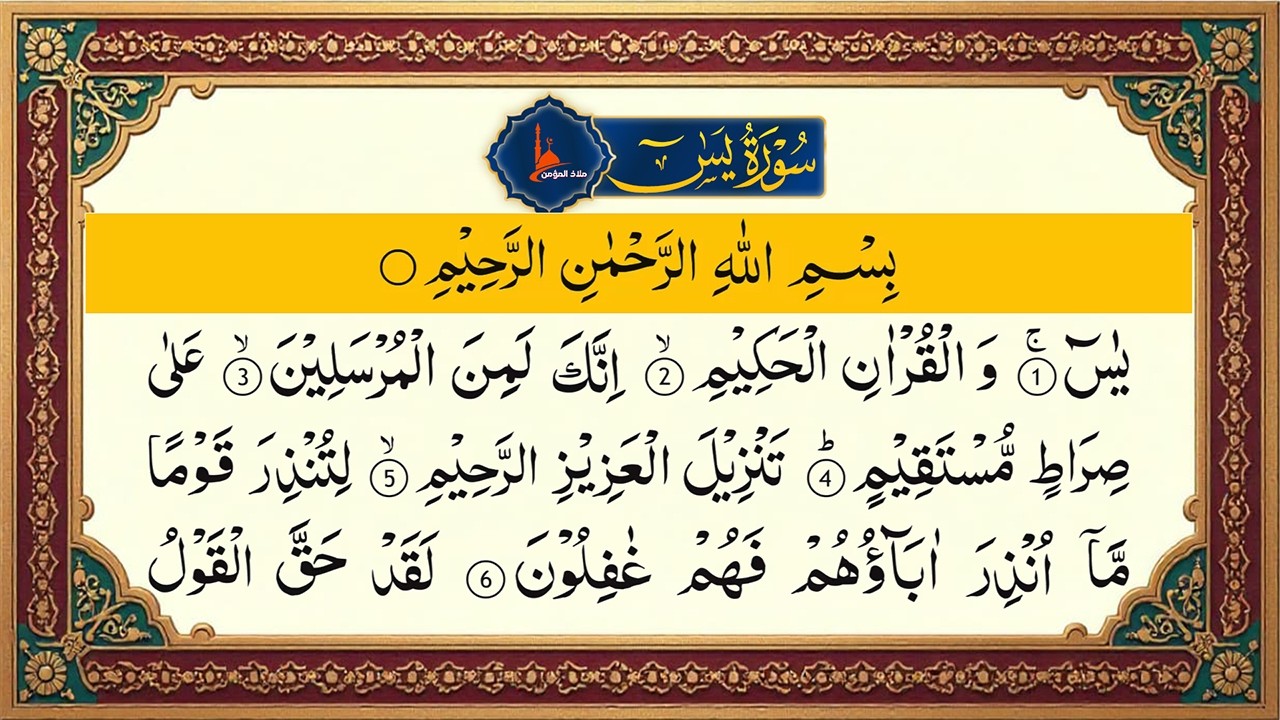 سُوْرَةُ يٰسٓ
ملاذ المؤمن
بِسْمِ اللّٰهِ الرَّحْمٰنِ الرَّحِيْمِ ○
يٰسٓ ۚ ① وَ الْقُرْاٰنِ الْحَكِيْمِ ۙ ② اِنَّكَ لَمِنَ الْمُرْسَلِيْنَ ۙ ③ عَلٰى
صِرَاطٍ مُّسْتَقِيْمٍ ؕ ④ تَنْزِيْلَ الْعَزِيْزِ الرَّحِيْمِ ۙ ⑤ لِتُنْذِرَ قَوْمًا
مَّاۤ اُنْذِرَ اٰبَآؤُهُمْ فَهُمْ غٰفِلُوْنَ ⑥ لَقَدْ حَقَّ الْقَوْلُ